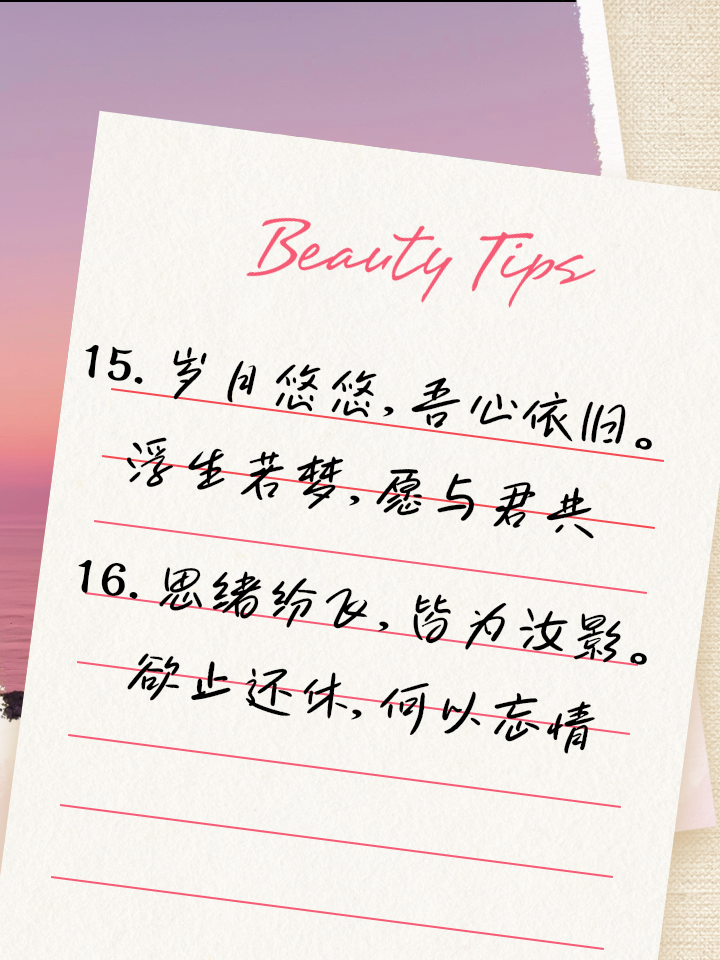 Beauty Tips
15. 岁月悠悠，吾心依旧。
浮生若梦，愿与君共
16. 思绪纷飞，皆为汝影。
欲止还休，何以忘情